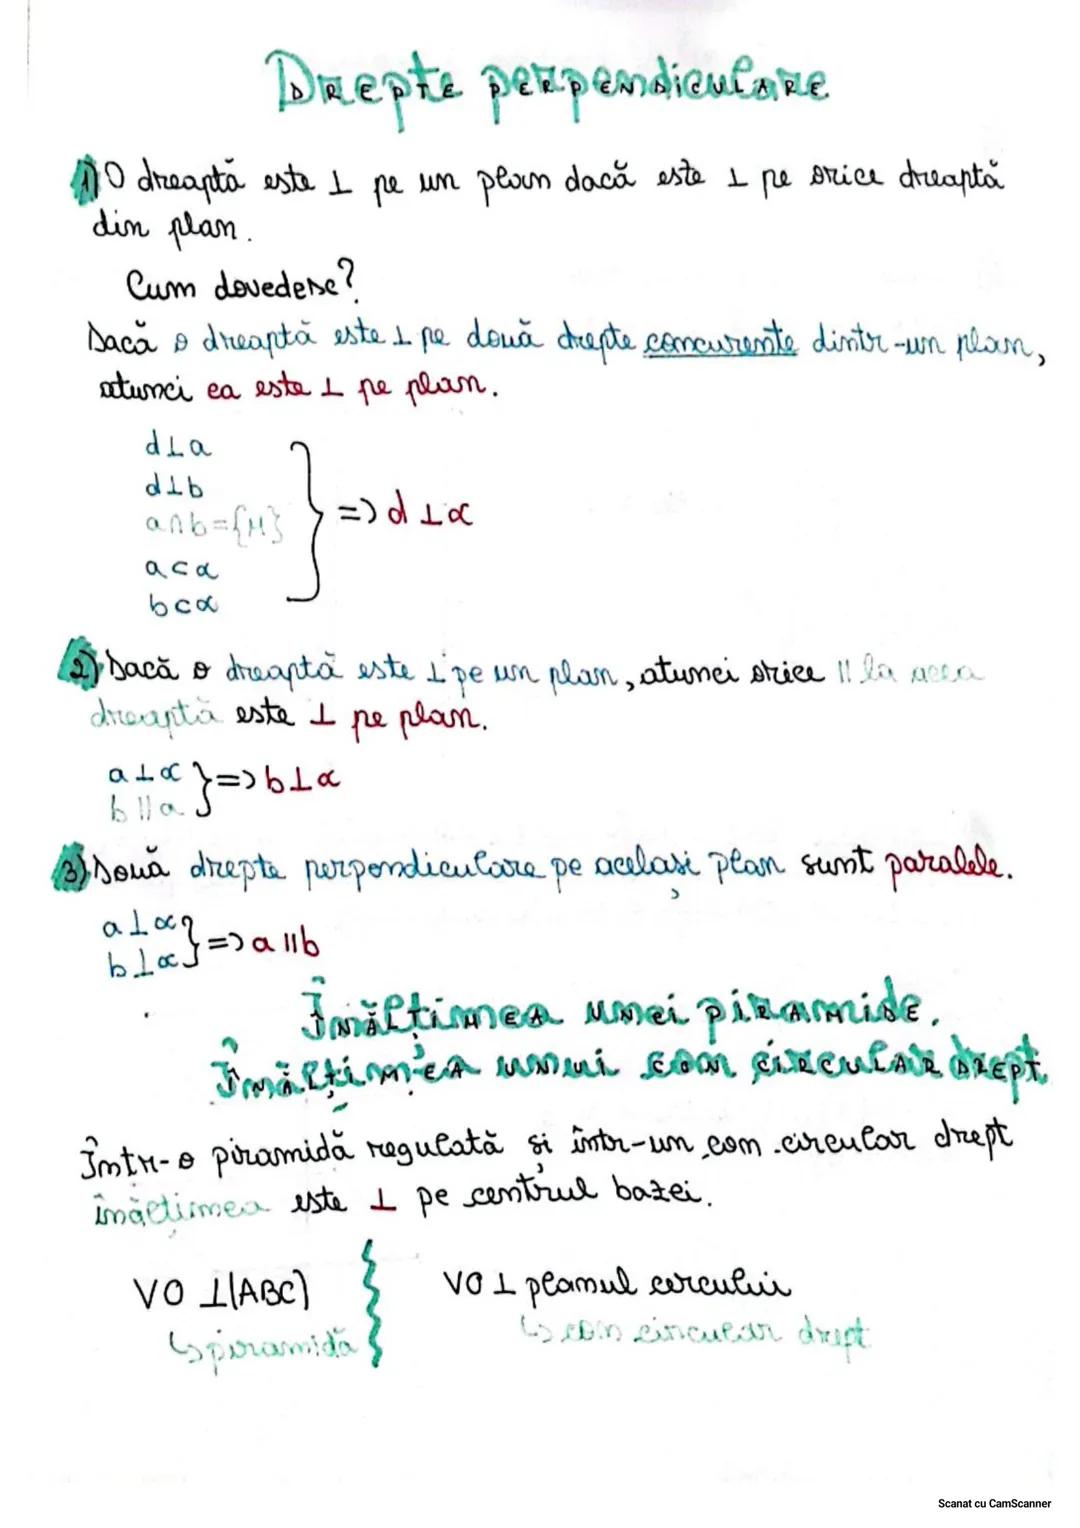 Drepte perpendiculare
1) O dreaptă este ⊥ pe un plan dacă este ⊥ pe orice dreaptă
din plan.
Cum dovedesc?
Dacă o dreaptă este ⊥ pe două drepte concurente dintr-un plan,
atunci ea este ⊥ pe plan.
d⊥a
d⊥b
a∩b={M}
a⊂α
b⊂α
=> d⊥α
2) Dacă o dreaptă este ⊥ pe un plan, atunci orice || la acea
dreaptă este ⊥ pe plan.
a⊥α
b||a
} => b⊥α
3) Două drepte perpendiculare pe același plan sunt paralele.
a⊥α
b⊥α
} => a||b
Înălțimea unei piramide.
Înălțimea unui con circular drept.
Într-o piramidă regulată și într-un con circular drept
înălțimea este ⊥ pe centrul bazei.
VO ⊥(ABC)
↳ piramidă
VO ⊥ planul cercului
↳ con circular drept
Scanat cu CamScanner